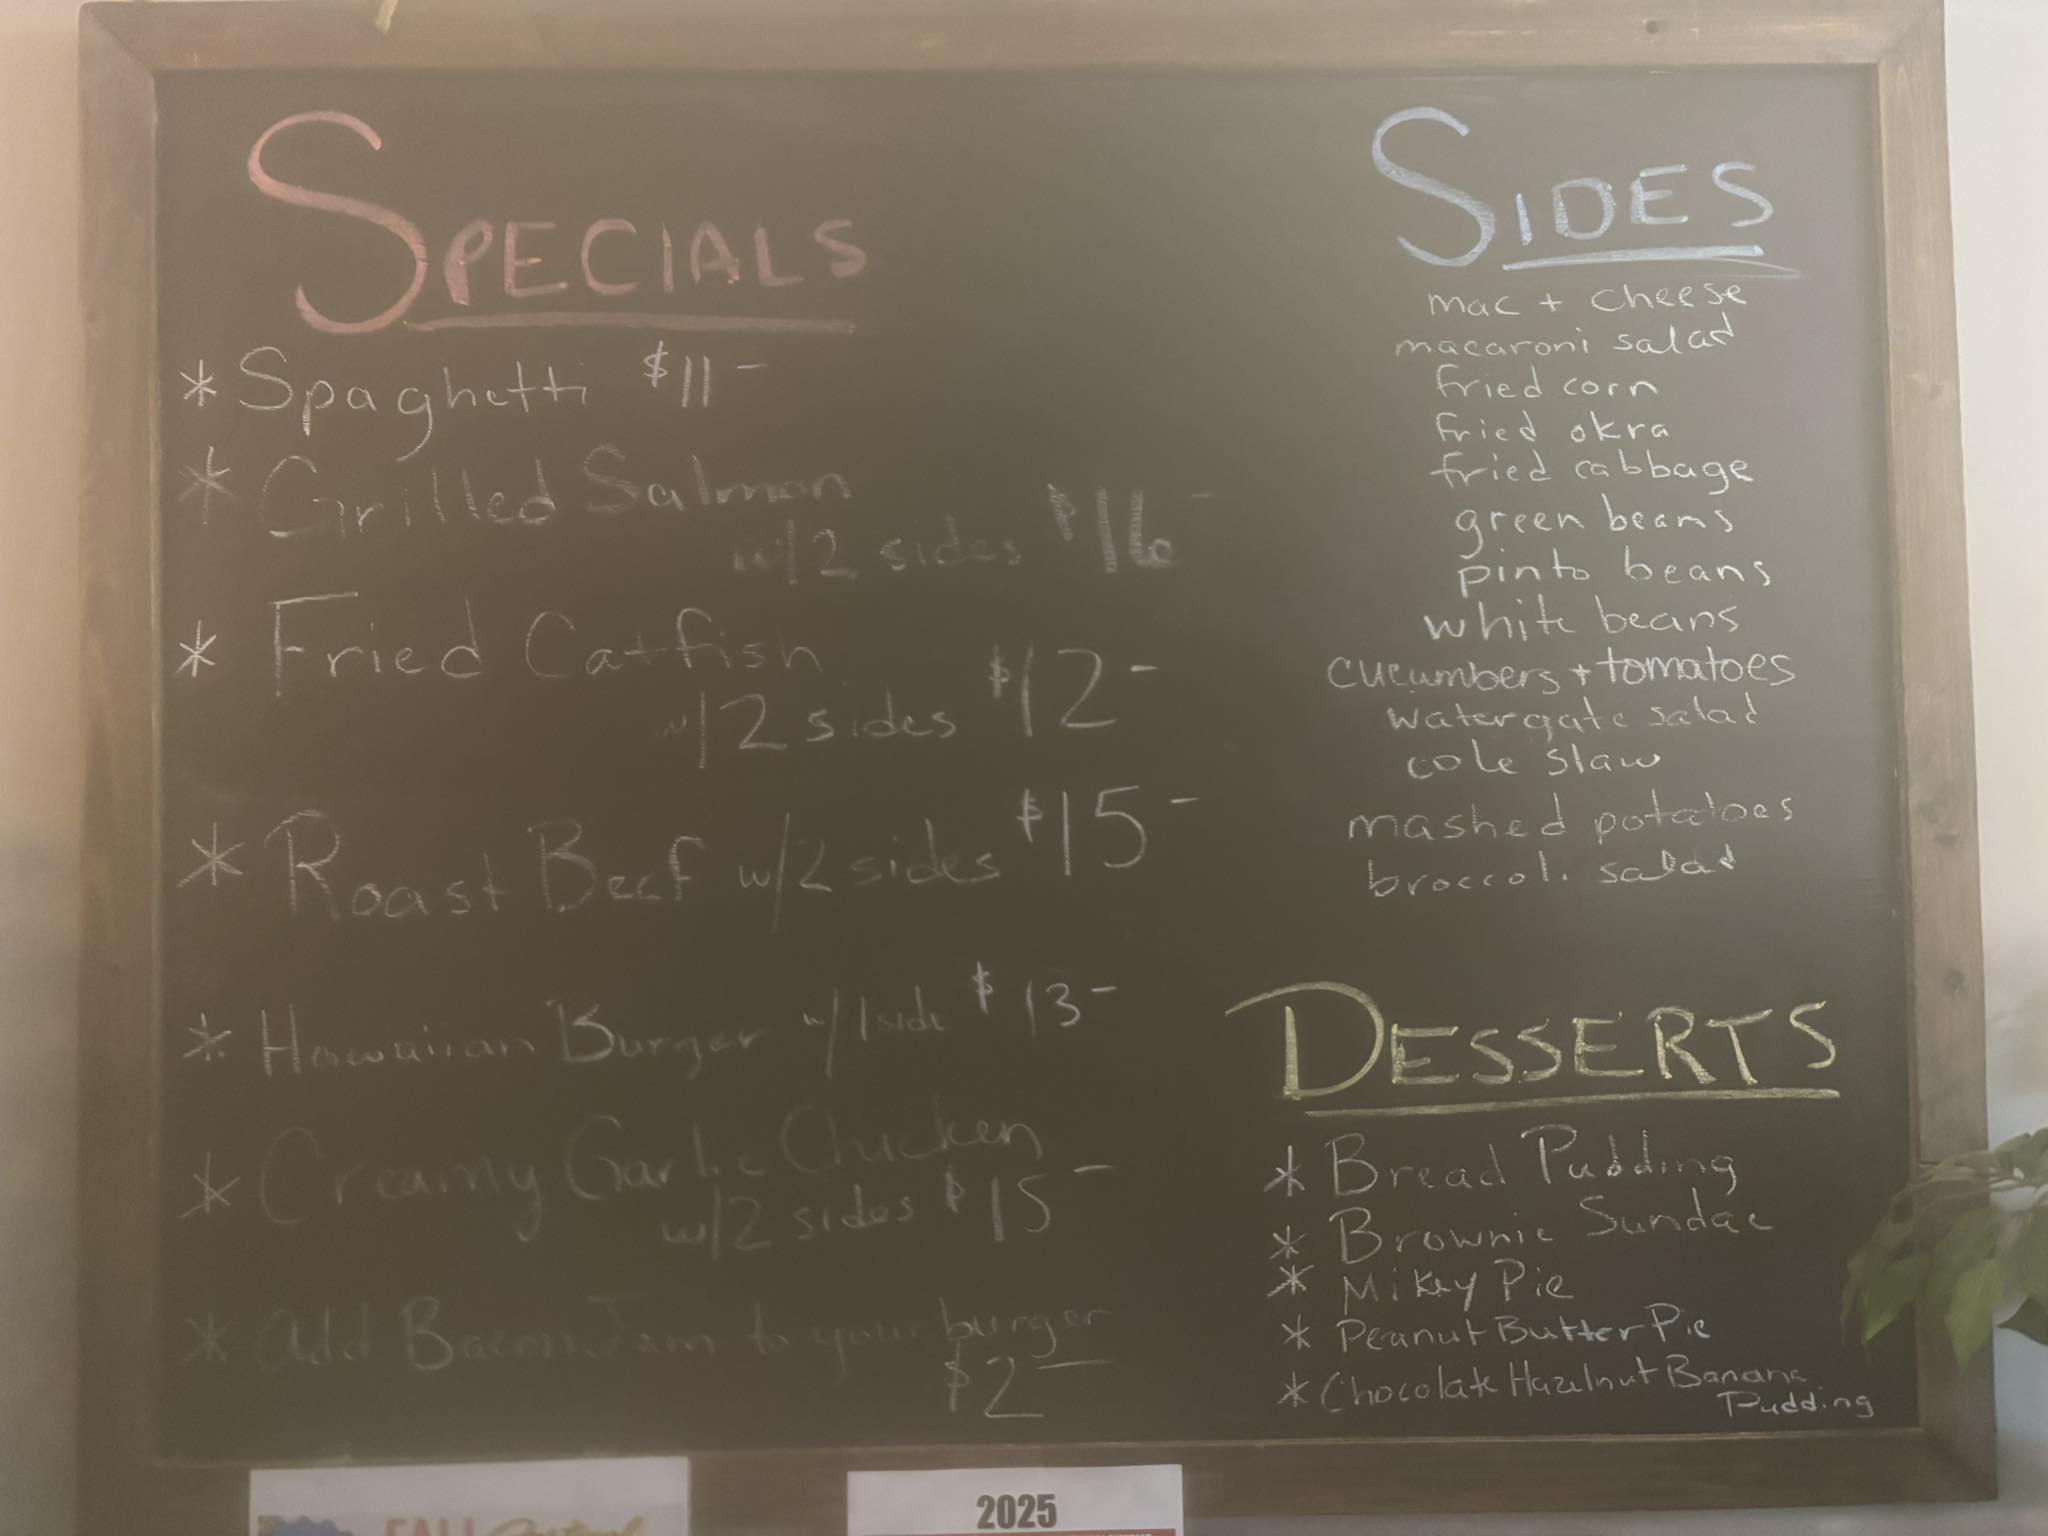 SPECIALS
* Spaghetti $11-
* Grilled Salmon
w/2 sides $16-
* Fried Catfish
w/2 sides $12-
* Roast Beef w/2 sides $15-
* Hawaiian Burger w/1 side $13-
* Creamy Garlic Chicken
w/2 sides $15-
* Add Bacon Jam to your burger
$2-
SIDES
mac + cheese
macaroni salad
fried corn
fried okra
fried cabbage
green beans
pinto beans
white beans
cucumbers + tomatoes
watergate salad
cole slaw
mashed potatoes
broccoli salad
DESSERTS
* Bread Pudding
* Brownie Sundae
* Pie
* Peanut Butter Pie
* Chocolate Hazelnut Banana
Pudding
FALL
2025